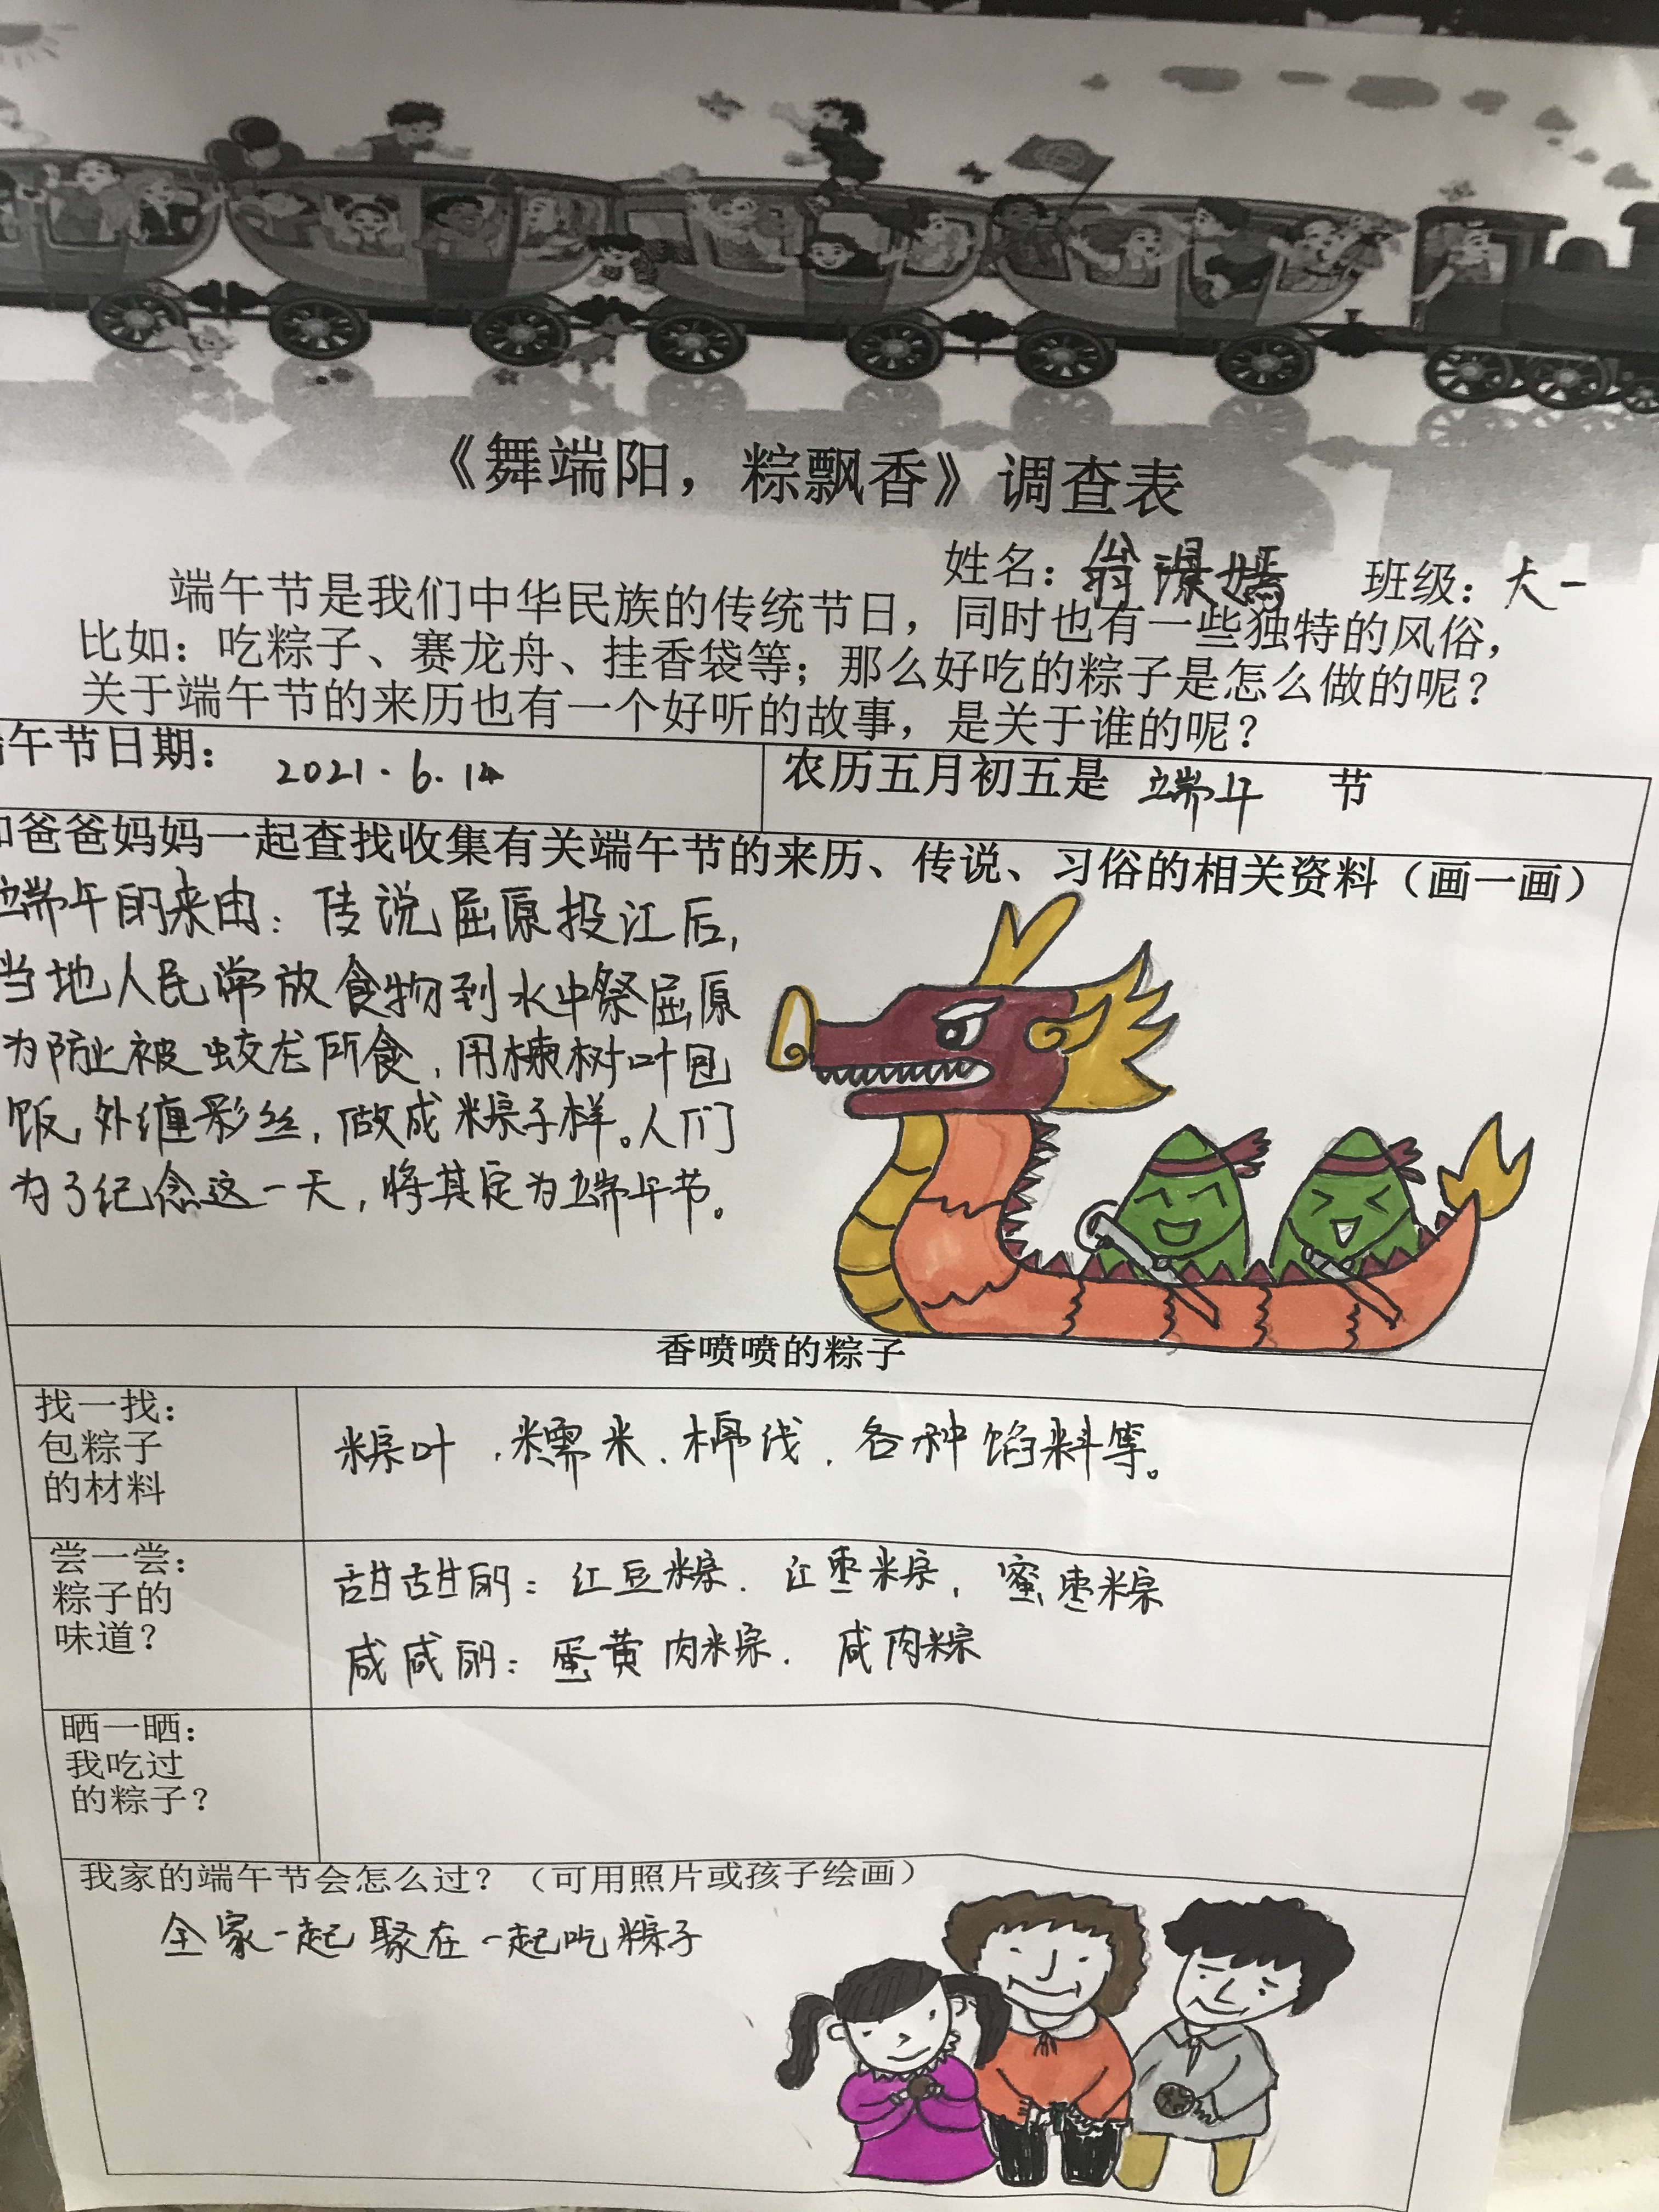 《舞端阳，粽飘香》调查表
姓名：翁 嫣 班级：大一
端午节是我们中华民族的传统节日，同时也有一些独特的风俗，
比如：吃粽子、赛龙舟、挂香袋等；那么好吃的粽子是怎么做的呢？
关于端午节的来历也有一个好听的故事，是关于谁的呢？
午节日期： 2021.6.14 农历五月初五是 端午 节
爸爸妈妈一起查找收集有关端午节的来历、传说、习俗的相关资料（画一画）
端午的来由：传说屈原投江后，
当地人民常放食物到水中祭屈原
为防止被蛟龙所食，用楝树叶包
饭，外缠彩丝，做成粽子样。人们
为了纪念这一天，将其定为端午节。
香喷喷的粽子
找一找：
包粽子
的材料
粽叶、糯米、棉线、各种馅料等。
尝一尝：
粽子的
味道？
甜甜的：红豆粽、红枣粽，蜜枣粽
咸咸的：蛋黄肉粽、咸肉粽
晒一晒：
我吃过
的粽子？
我家的端午节会怎么过？（可用照片或孩子绘画）
全家一起聚在一起吃粽子